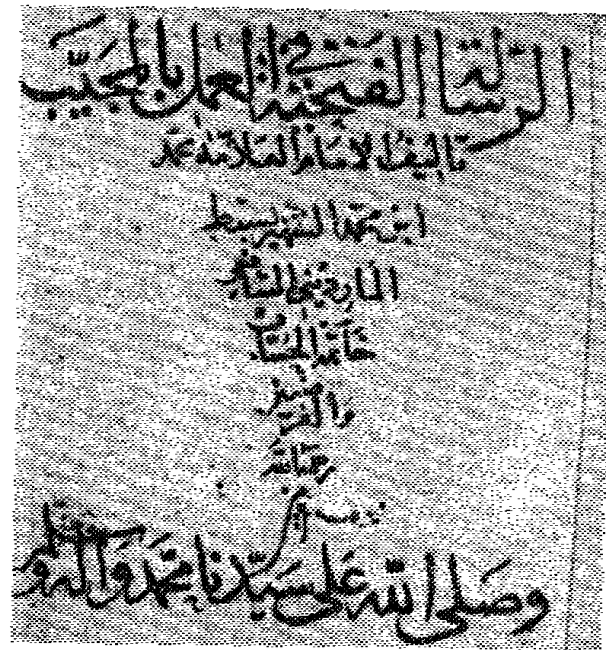 الرسالة الفتحية في العمل بالجيب
تأليف الامام العلامة محمد
ابن محمد الشهير بسبط
المارديني الشافعي
خاتمة الحساب
والفرضيين
رحمه الله
وصلى الله على سيدنا محمد وآله وصحبه وسلم